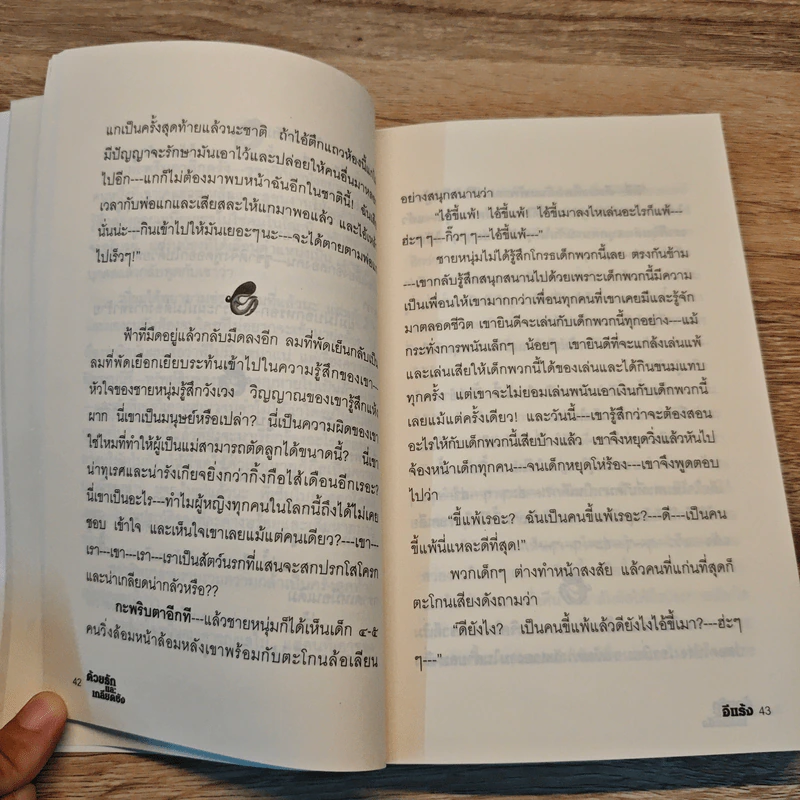 แกเป็นครั้งสุดท้ายแล้วนะชาติ ถ้าไอ้ตึกแถวห้องนี้
มีปัญญาจะรักษามันเอาไว้และปล่อยให้คนอื่นมา
ไปอีก---แกก็ไม่ต้องมาพบหน้าฉันอีกในชาตินี้!
เวลากับพ่อแกและเสียสละให้แกมาพอแล้ว และไอ้
นั่นน่ะ---กินเข้าไปให้มันเยอะๆนะ---จะได้ตายตามพ่อ
ไปเร็วๆ!"
ฟ้าที่มืดอยู่แล้วกลับมืดลงอีก ลมที่พัดเย็นกลับเป็น
ลมที่พัดเยือกเยียบระท้นเข้าไปในความรู้สึกของเขา---
หัวใจของชายหนุ่มรู้สึกวังเวง วิญญาณของเขารู้สึก
ผาก นี่เขาเป็นมนุษย์หรือเปล่า? นี่เป็นความผิดของเขา
ใช่ไหมที่ทำให้ผู้เป็นแม่สามารถตัดลูกได้ขนาดนี้? นี่เขา
น่าทุเรศและน่ารังเกียจยิ่งกว่ากิ้งกือไส้เดือนอีกเรอะ?
นี่เขาเป็นอะไร---ทำไมผู้หญิงทุกคนในโลกนี้ถึงได้ไม่เคย
ชอบ เข้าใจ และเห็นใจเขาเลยแม้แต่คนเดียว?---เขา---
เรา---เขา---เรา---เราเป็นสัตว์นรกที่แสนจะสกปรกโสโครก
และน่าเกลียดน่ากลัวหรือ??
กะพริบตาอีกที---แล้วชายหนุ่มก็ได้เห็นเด็ก ๔-๕
คนวิ่งล้อมหน้าล้อมหลังเขาพร้อมกับตะโกนล้อเลียน
42 ด้วยรัก
และ
เกลียดชัง
อย่างสนุกสนานว่า
"ไอ้ขี้แพ้! ไอ้ขี้แพ้! ไอ้ขี้เมาลงไหเล่นอะไรก็แพ้---
ฮ่ะๆ ๆ---กิ๊วๆ ๆ---ไอ้ขี้แพ้---"
ชายหนุ่มไม่ได้รู้สึกโกรธเด็กพวกนี้เลย ตรงกันข้าม
---เขากลับรู้สึกสนุกสนานไปด้วยเพราะเด็กพวกนี้มีความ
เป็นเพื่อนให้เขามากกว่าเพื่อนทุกคนที่เขาเคยมีและรู้จัก
มาตลอดชีวิต เขายินดีจะเล่นกับเด็กพวกนี้ทุกอย่าง---แม้
กระทั่งการพนันเล็กๆ น้อยๆ เขายินดีที่จะแกล้งเล่นแพ้
และเล่นเสียให้เด็กพวกนี้ได้ของเล่นและได้กินขนมแทบ
ทุกครั้ง แต่เขาจะไม่ยอมเล่นพนันเอาเงินกับเด็กพวกนี้
เลยแม้แต่ครั้งเดียว! และวันนี้---เขารู้สึกว่าจะต้องสอน
อะไรให้กับเด็กพวกนี้เสียบ้างแล้ว เขาจึงหยุดวิ่งแล้วหันไป
จ้องหน้าเด็กทุกคน---จนเด็กหยุดโห่ร้อง---เขาจึงพูดตอบ
ไปว่า
"ขี้แพ้เรอะ? ฉันเป็นคนขี้แพ้เรอะ?---ดี---เป็นคน
ขี้แพ้นี่แหละดีที่สุด!"
พวกเด็กๆ ต่างทำหน้าสงสัย แล้วคนที่แก่นที่สุดก็
ตะโกนเสียงดังถามว่า
"ดียังไง? เป็นคนขี้แพ้แล้วดียังไงไอ้ขี้เมา?---ฮ่ะๆ
ๆ---"
อีแร้ง 43